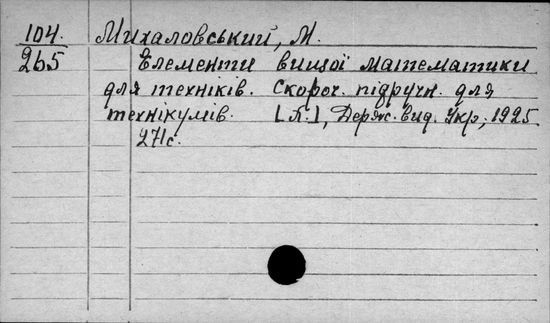 104. Михаловський, М.
265 Елементи вищої математики
для техніків. Скороч. підручн. для
технікумів. [К.], Держ. вид. Укр., 1925
271с.